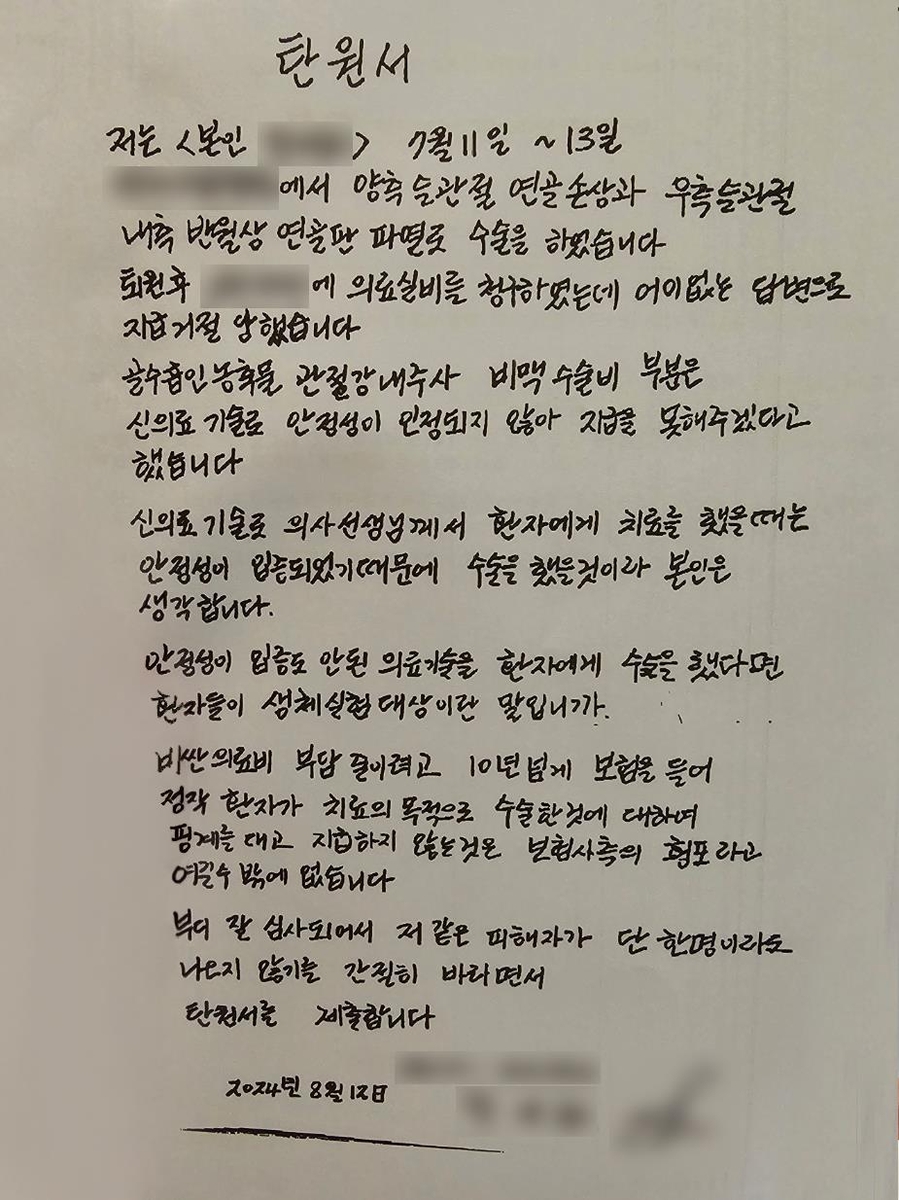 탄원서
저는 <본인 > 7월 11일 ~13일
에서 양측 슬관절 연골손상과 우측슬관절
내측 반월상 연골판 파열로 수술을 하였습니다
퇴원후 에 의료실비를 청구하였는데 어이없는 답변으로
지급거절 당했습니다
골수흡인농축물 관절강내주사 비맥 수술비 부분은
신의료 기술로 안정성이 인정되지 않아 지급을 못해주겠다고
했습니다
신의료기술로 의사선생님께서 환자에게 치료를 했을때는
안정성이 입증되었기때문에 수술을 했을것이라 본인은
생각합니다.
안정성이 입증도 안된 의료기술을 환자에게 수술을 했다면
환자들이 생체실험대상이란 말입니까.
비싼의료비 부담 줄이려고 10년넘게 보험을 들어
정작 환자가 치료의 목적으로 수술한것에 대하여
핑계를 대고 지급하지 않는것은 보험사측의 횡포라고
여길수밖에 없습니다
부디 잘 심사되어서 저 같은 피해자가 단 한명이라도
나오지 않기를 간절히 바라면서
탄원서를 제출합니다
2024년 8월 12일